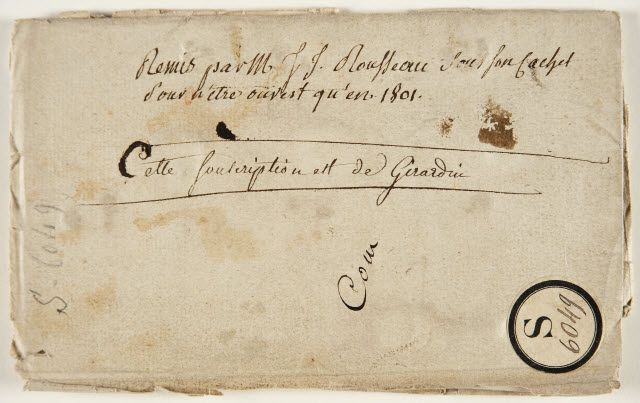 Remis par M J. J. Rousseau Sous son Cachet
Pour n'être ouvert qu'en 1801.
Cette souscription est de Girardin
Com
S-6049
S
6049